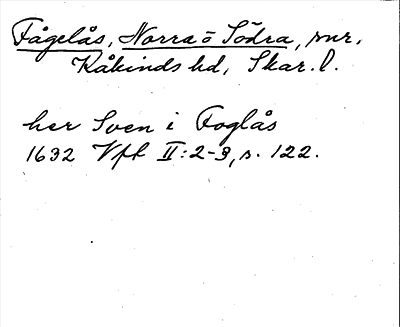 Fågelås, Norra o Södra, snr,
Kåkinds hd, Skar. l.
her Sven i Foglås
1632 Vft II:2-3, s. 122.